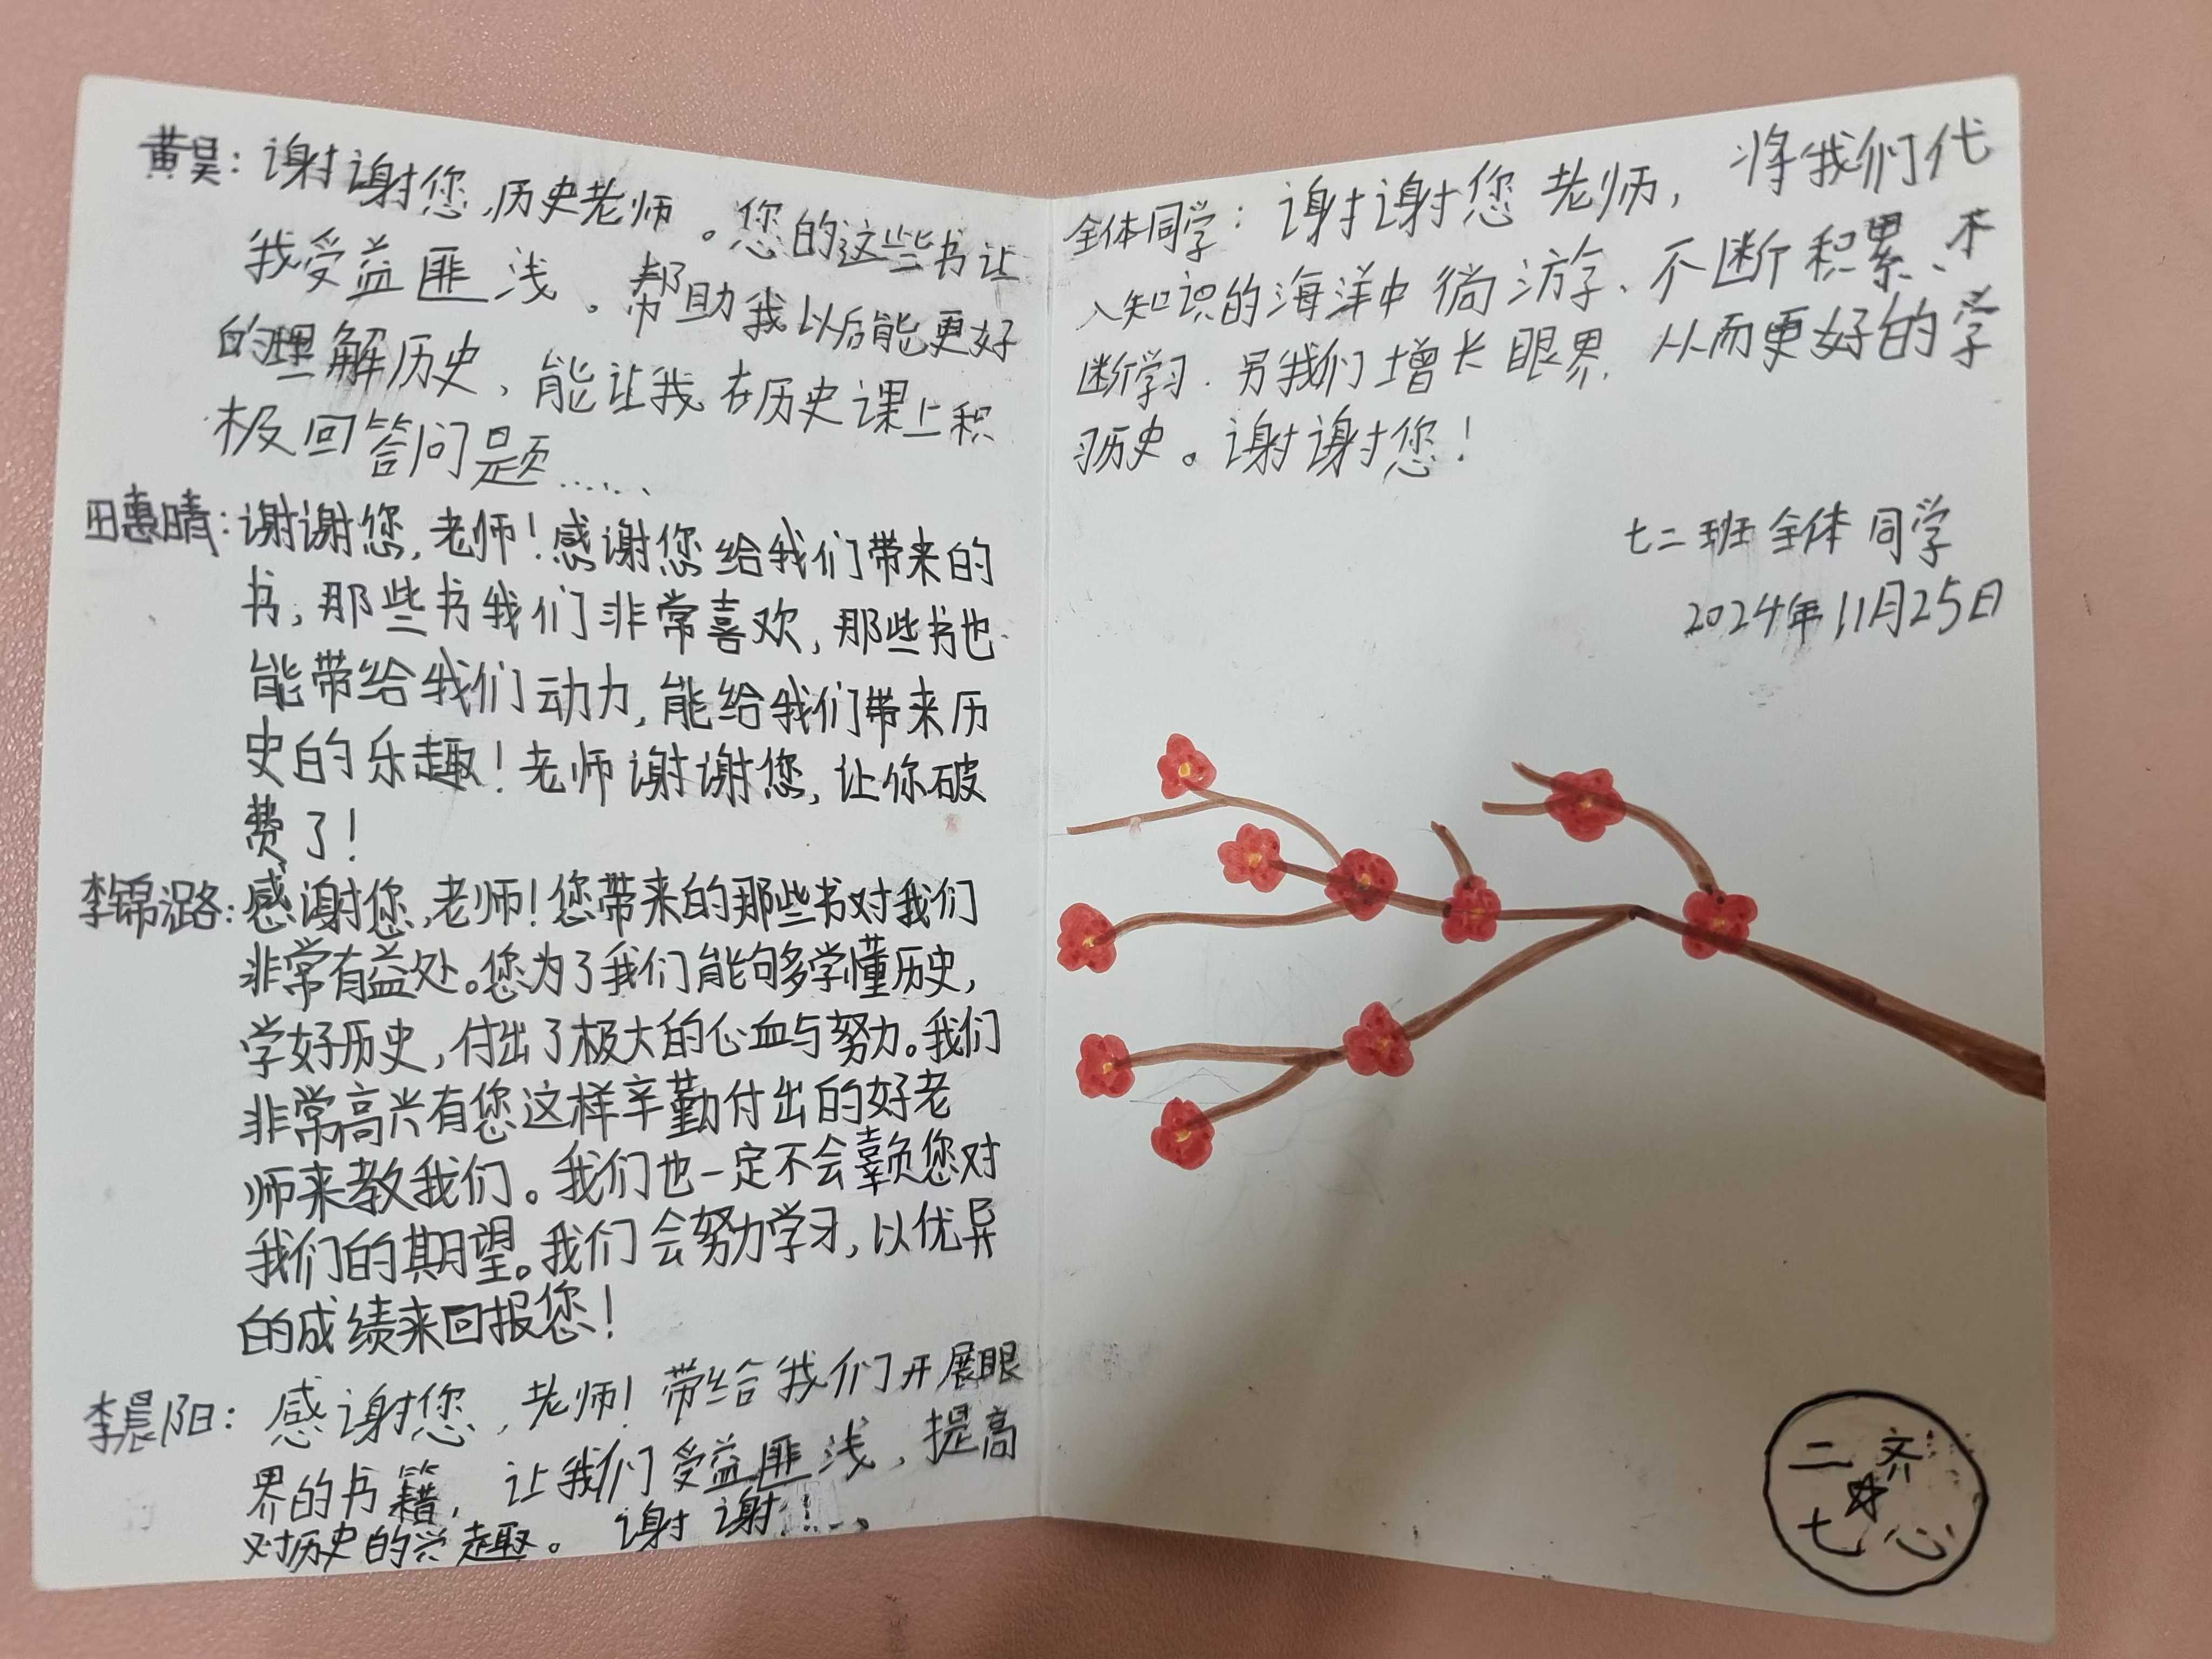 黄昊：谢谢您，历史老师。您的这些书让
我受益匪浅。帮助我以后能更好
的理解历史、能让我在历史课上积
极回答问题......
田惠晴：谢谢您，老师！感谢您给我们带来的
书，那些书我们非常喜欢，那些书也
能带给我们动力，能给我们带来历
史的乐趣！老师谢谢您，让你破
费了！
李锦潞：感谢您，老师！您带来的那些书对我们
非常有益处。您为了我们能够多学懂历史，
学好历史，付出了极大的心血与努力。我们
非常高兴有您这样辛勤付出的好老
师来教我们。我们也一定不会辜负您对
我们的期望。我们会努力学习，以优异
的成绩来回报您！
李晨阳：感谢您，老师！带给我们开展眼
界的书籍，让我们受益匪浅，提高
对历史的兴趣。谢谢！
全体同学：谢谢您老师，将我们代
入知识的海洋中徜游学、不断积累、不
断学习．另我们增长眼界．从而更好的学
习历史。谢谢您！
七二班全体同学
2024年11月25日
二齐
七心